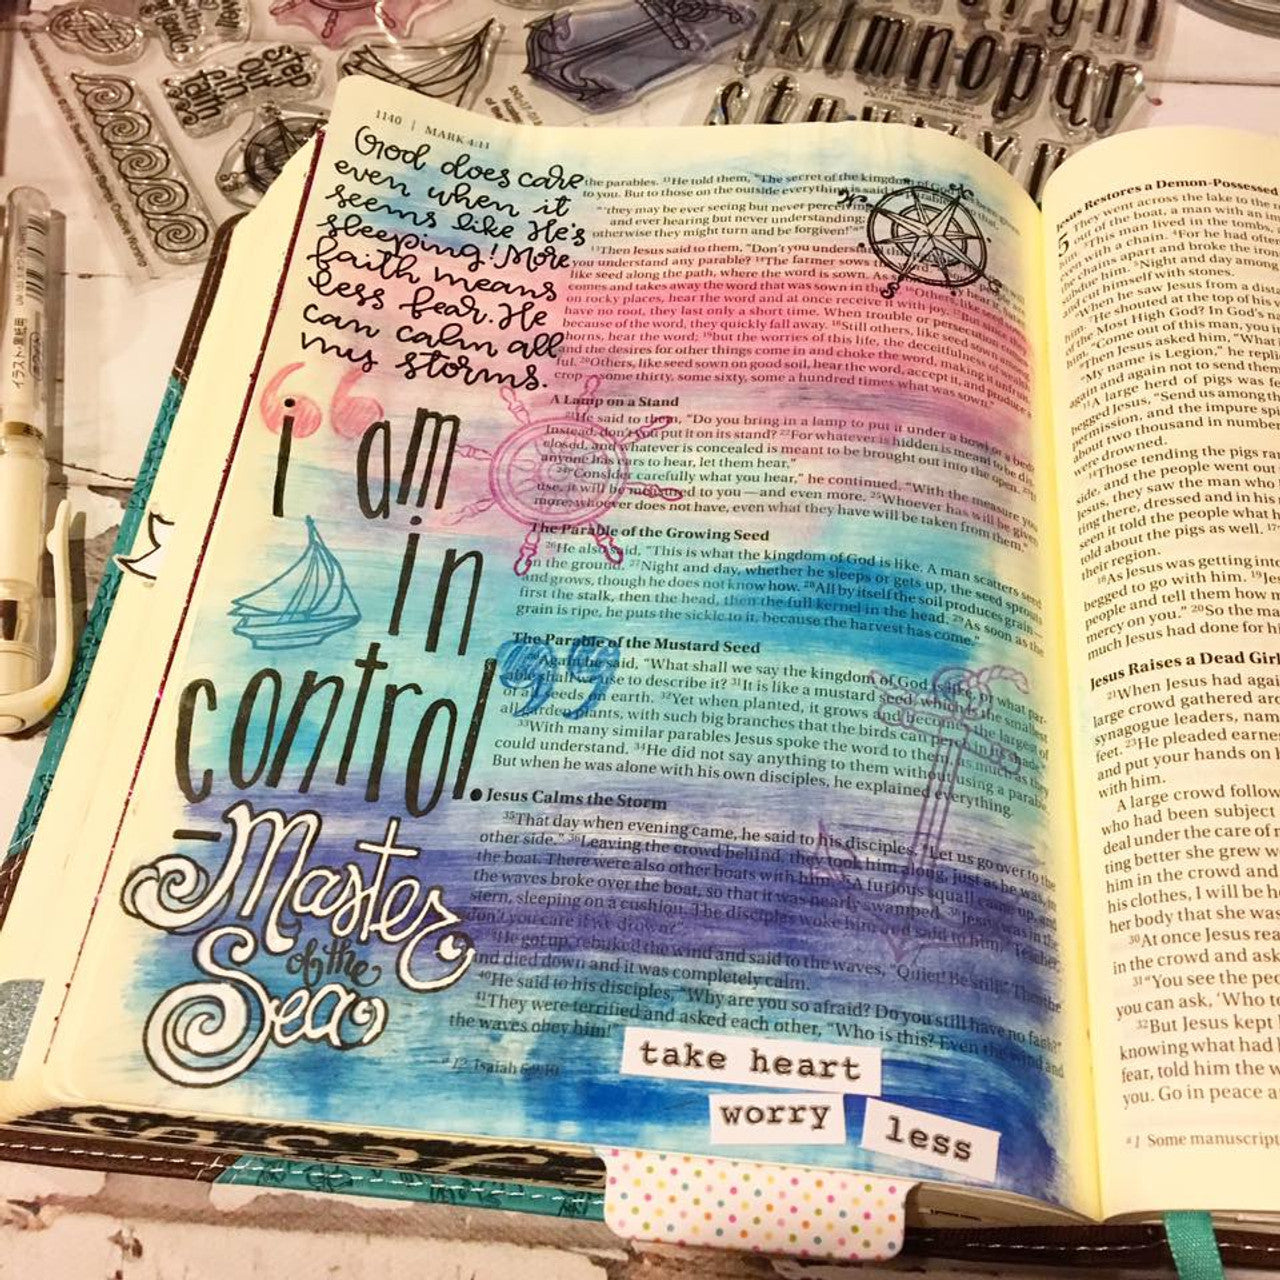 1140 | MARK 4:11
God does care
even when it
seems like He's
sleeping! More
faith means
less fear. He
can calm all
my storms.
“ i am
in
control. ”
– Master
of the
Sea
the parables. 11He told them, "The secret of the kingdom of God
to you. But to those on the outside everything is said
"'they may be ever seeing but never perceiving,
and ever hearing but never understanding;
otherwise they might turn and be forgiven!'"
13Then Jesus said to them, "Don't you understand
you understand any parable? 14The farmer sows
like seed along the path, where the word is sown. As
comes and takes away the word that was sown in
on rocky places, hear the word and at once receive it with joy.
have no root, they last only a short time. When trouble or persecution
because of the word, they quickly fall away. 18Still others, like seed sown among
horns, hear the word; 19but the worries of this life, the deceitfulness of wealth
and the desires for other things come in and choke the word, making it
ful. 20Others, like seed sown on good soil, hear the word, accept it, and produce a
crop — some thirty, some sixty, some a hundred times what was sown."
A Lamp on a Stand
21He said to them, "Do you bring in a lamp to put it under a bowl or a bed?
Instead, don't you put it on its stand? 22For whatever is hidden is meant to be dis-
closed, and whatever is concealed is meant to be brought out into the open. 23If
anyone has ears to hear, let them hear."
24"Consider carefully what you hear," he continued. "With the measure you
use, it will be measured to you — and even more. 25Whoever has will be given
more; whoever does not have, even what they have will be taken from them."
The Parable of the Growing Seed
26He also said, "This is what the kingdom of God is like. A man scatters seed
on the ground. 27Night and day, whether he sleeps or gets up, the seed sprouts
and grows, though he does not know how. 28All by itself the soil produces grain —
first the stalk, then the head, then the full kernel in the head. 29As soon as the
grain is ripe, he puts the sickle to it, because the harvest has come."
The Parable of the Mustard Seed
30Again he said, "What shall we say the kingdom of God is like, or what par-
able shall we use to describe it? 31It is like a mustard seed, which is the smallest
of all seeds on earth. 32Yet when planted, it grows and becomes the largest of
all garden plants, with such big branches that the birds can perch in its shade."
33With many similar parables Jesus spoke the word to them, as much as they
could understand. 34He did not say anything to them without using a parable.
But when he was alone with his own disciples, he explained everything.
Jesus Calms the Storm
35That day when evening came, he said to his disciples, "Let us go over to the
other side." 36Leaving the crowd behind, they took him along, just as he was, in
the boat. There were also other boats with him. 37A furious squall came up, and
the waves broke over the boat, so that it was nearly swamped. 38Jesus was in the
stern, sleeping on a cushion. The disciples woke him and said to him, "Teacher,
don't you care if we drown?"
39He got up, rebuked the wind and said to the waves, "Quiet! Be still!" Then the
ind died down and it was completely calm.
40He said to his disciples, "Why are you so afraid? Do you still have no faith?"
41They were terrified and asked each other, "Who is this? Even the wind and
the waves obey him!"
a 12 Isaiah 6:9,10
take heart
worry less
Jesus Restores a Demon-Possessed
5 They went across the lake to the
out of the boat, a man with an im
2This man lived in the tombs,
with a chain. 4For he had often
chains apart and broke the irons
5Night and day among
himself with stones.
6When he saw Jesus from a dista
him. 7He shouted at the top of his
"Most High God? In God's na
"Come out of this man, you i
9Then Jesus asked him, "What
"My name is Legion," he repli
again and again not to send them
11A large herd of pigs was fe
begged Jesus, "Send us among th
permission, and the impure sp
about two thousand in number
were drowned.
14Those tending the pigs ra
side, and the people went out
Jesus, they saw the man who
ting there, dressed and in his
seen it told the people what h
told about the pigs as well. 17
their region.
18As Jesus was getting into
begged to go with him. 19Jes
people and tell them how m
mercy on you." 20So the ma
much Jesus had done for hi
Jesus Raises a Dead Girl
21When Jesus had agai
large crowd gathered aro
synagogue leaders, nam
feet. 23He pleaded earne
and put your hands on
with him.
A large crowd follow
who had been subject
deal under the care of
ting better she grew w
him in the crowd and
his clothes, I will be h
her body that she was
30At once Jesus rea
in the crowd and ask
31"You see the peo
you can ask, 'Who to
32But Jesus kept
knowing what had
fear, told him the w
you. Go in peace a
a 1 Some manuscript
jklmnopqr